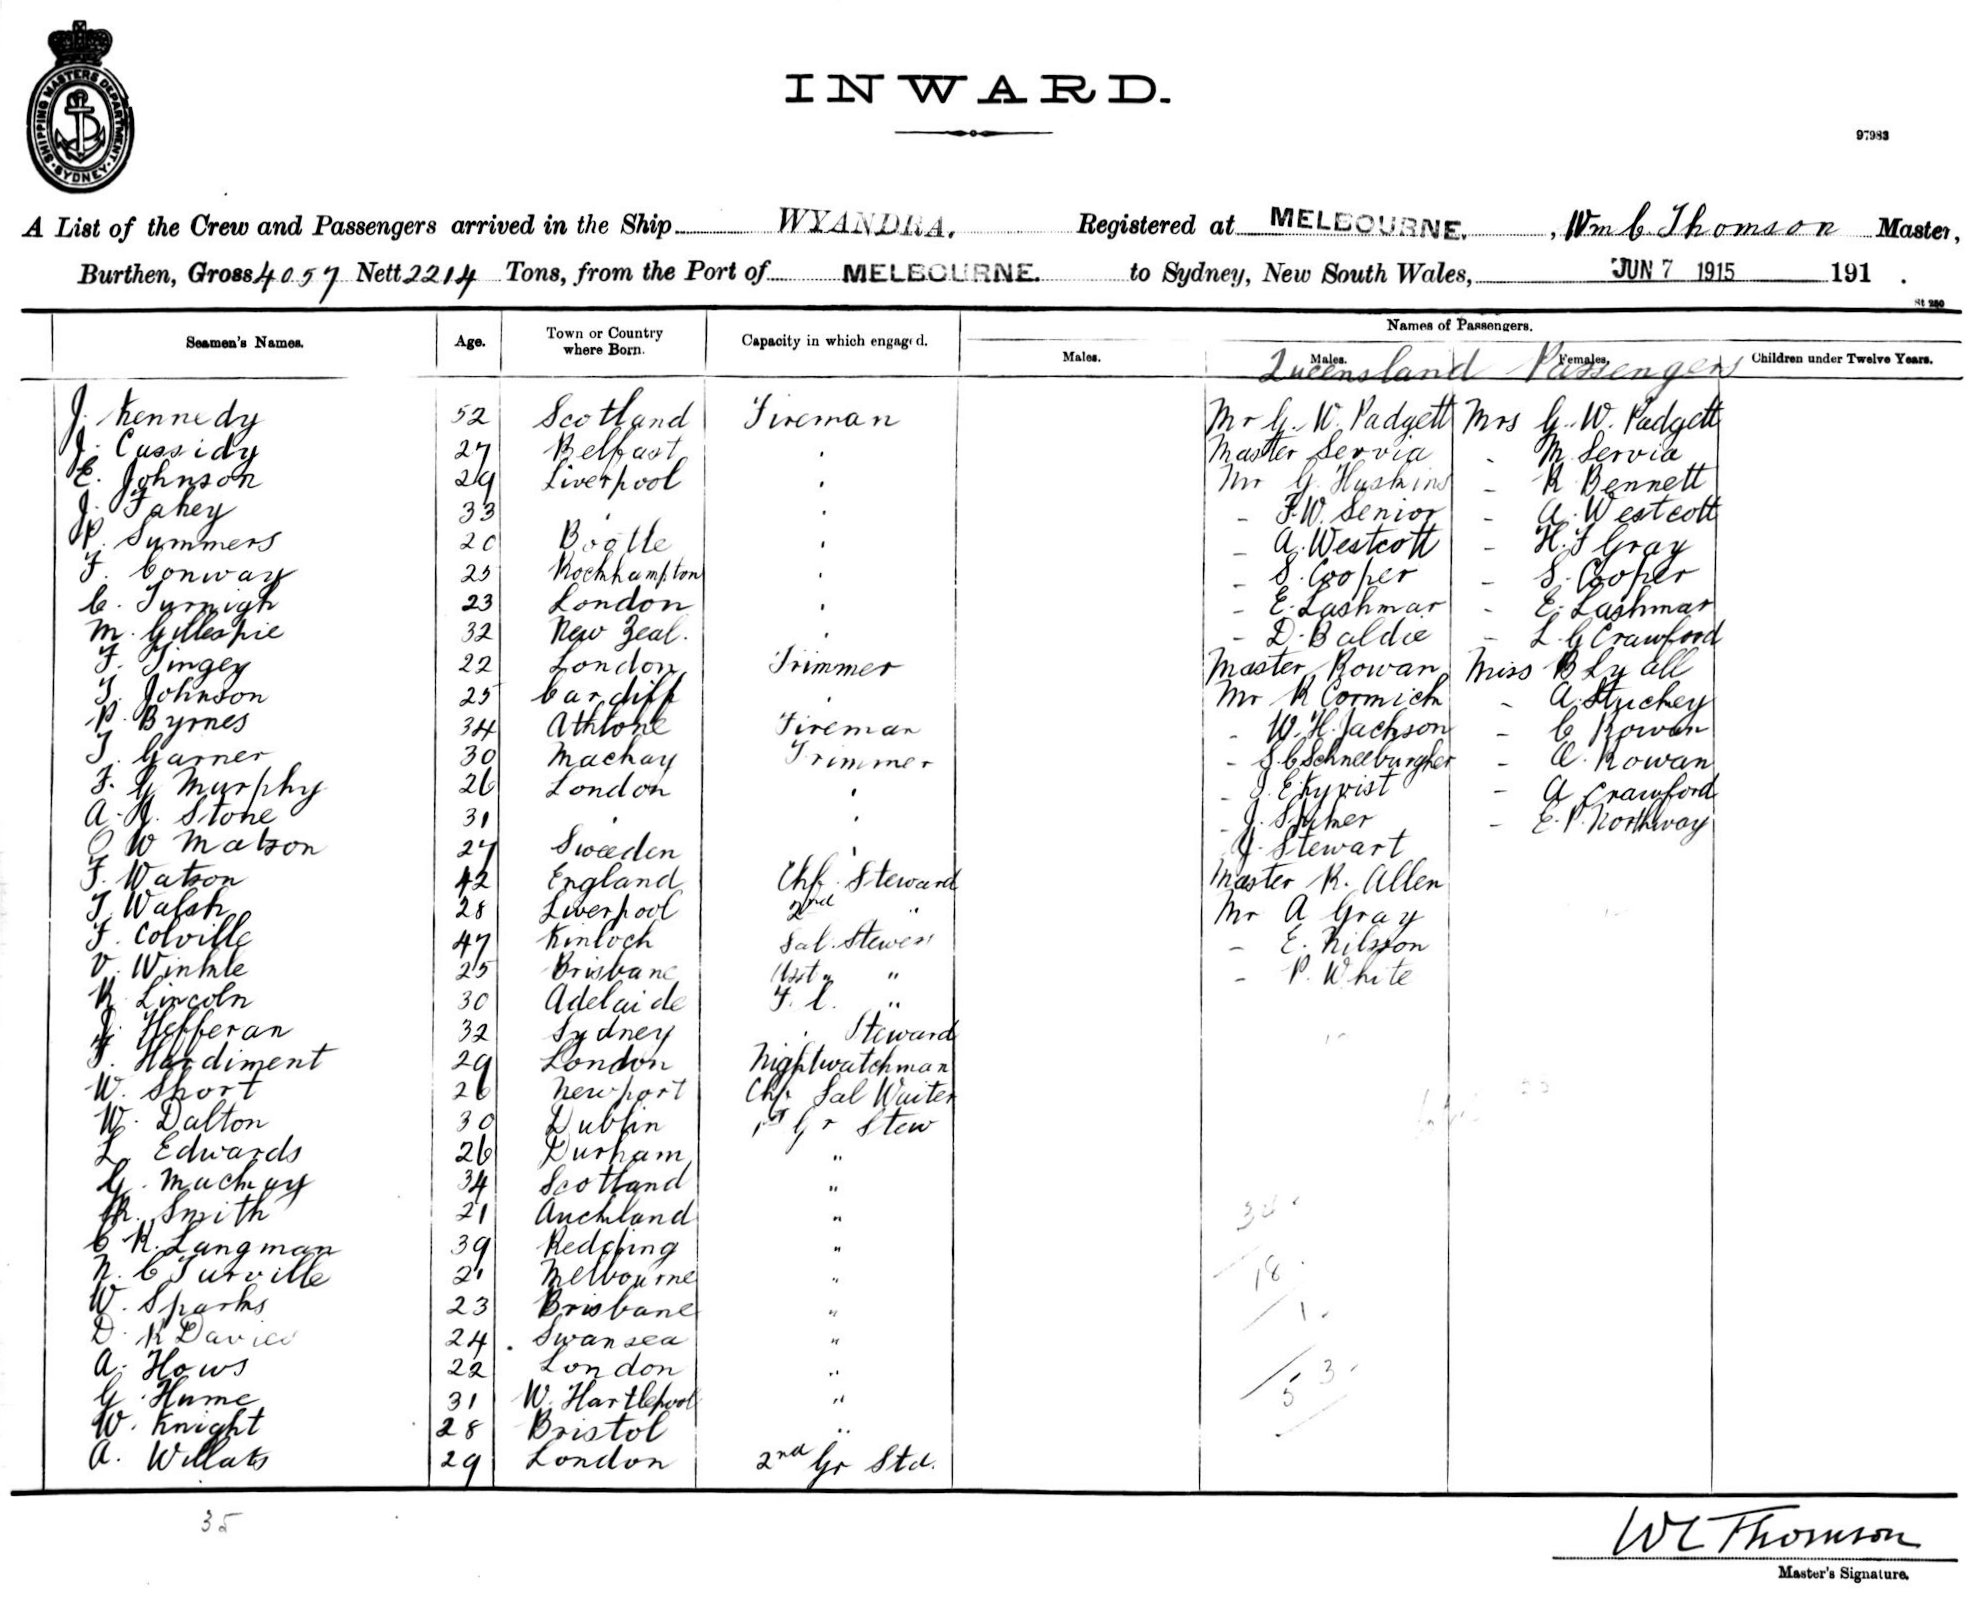 SHIPPING MASTERS DEPARTMENT · SYDNEY ·
INWARD.
97983
A List of the Crew and Passengers arrived in the Ship WYANDRA. Registered at MELBOURNE. , Wm C Thomson Master,
Burthen, Gross 4057 Nett 2214 Tons, from the Port of MELBOURNE. to Sydney, New South Wales, JUN 7 1915 191 .
St 250
Seamen's Names. Age. Town or Country where Born. Capacity in which engaged. Names of Passengers.
Males. Males. Females. Children under Twelve Years.
Queensland Passengers
J. Kennedy 52 Scotland Fireman Mr G. W. Padgett Mrs G. W. Padgett
J. Cassidy 27 Belfast . Master Servia - M. Servia
E. Johnson 29 Liverpool . Mr G. Huskins - R Bennett
J. Fahey 33 . . - F.W. Senior - A. Westcott
P. Summers 20 Bootle . - A. Westcott - H. F Gray
F. Conway 25 Rockhampton . - S. Cooper - S. Cooper
C. Turnigh 23 London . - E. Lashmar - E. Lashmar
M. Gillespie 32 New Zeal. . - D. Baldie - L. G Crawford
F. Tingey 22 London Trimmer Master Rowan Miss B Lyall
T. Johnson 25 Cardiff . Mr R Cormick - A. Stuckey
P. Byrnes 34 Athlone Fireman - W. H. Jackson - C Rowan
T. Garner 30 Mackay Trimmer - S. C Schneeburgher - A. Rowan
F. G Murphy 26 London . - J. Ekyvist - A Crawford
A. J. Stone 31 . . - J. Stumer - E. P. Northway
O W Matson 27 Sweeden . J. Stewart
F. Watson 42 England Chf. Steward Master R. Allen
T. Walsh 28 Liverpool 2nd " Mr A Gray
F. Colville 47 Kinloch Sal. Stewess - E. Nilsson
V. Winkle 25 Brisbane Asst " " - P. White
R Lincoln 30 Adelaide F. C. "
J. Hefferan 32 Sydney . Steward
F. Hardiment 29 London Nightwatchman
W. Short 26 Newport Chf. Sal Waiter
W. Dalton 30 Dublin 1st Gr Stew
L. Edwards 26 Durham "
G. Mackay 34 Scotland "
R. Smith 21 Auckland "
C R. Langman 39 Redding "
N. C Turville 21 Melbourne "
W. Sparks 23 Brisbane "
D. R Davies 24 Swansea "
A. Hows 22 London "
G. Hume 31 W. Hartlepool "
W. Knight 28 Bristol "
A. Willats 29 London 2nd Gr Std.
18
1
53
35
WC Thomson
Master's Signature.